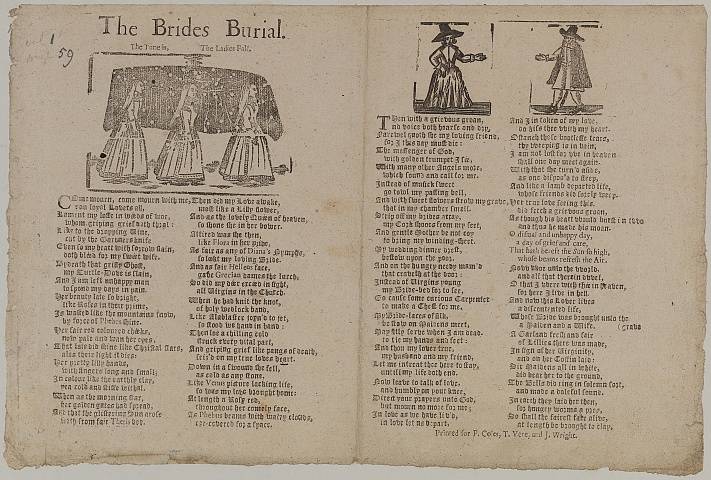 The Brides Burial.
The Tune is, The Ladies Fall.
59
COme mourn, come mourn with me,
you loyal Lovers all,
Lament my loss in weeds of woe,
whom griping grief doth thral:
Like to the dropping Vine,
cut by the Gardners knife
Even so my heart with sorrow slain,
doth bleed for my sweet wife.
By death that grisly Ghost,
my Turtle-Dove is slain,
And I am left unhappy man
to spend my days in pain.
Her beauty late so bright,
like Roses in their prime,
Is wasted like the mountains snow,
by force of Phebus shine.
Her fair red coloured cheeks,
now pale and wan her eyes,
That late did shine like Christal stars,
alas their light it dies:
Her pretty lilly hands,
with fingers long and small;
In colour like the earthly clay,
yea cold and stiff withal.
When as the morning star,
her golden gates had spread,
And that the glistering Sun arose
forth from fair Thetis bed.
Then did my Love awake,
most like a Lilly flower,
And as the lovely Queen of heaven,
so shone she in her bower.
Attired was she then,
like Flora in her pride,
As fair as any of Diana's Nymphs,
so lookt my loving Bride.
And as fair Hellens face,
gave Grecian dames the lurch:
So did my dear exceed in sight,
all Virgins in the Church.
When he had knit the knot,
of holy wedlock band,
Like Alablaster joyn'd to jet,
so stood we hand in hand:
Then loe a chilling cold
struck every vital part,
And griping grief like pangs of death,
seiz'd on my true loves heart.
Down in a swound she fell,
as cold as any stone.
Like Venus picture lacking life,
so was my love brought home:
At length a Rosy red,
throughout her comely face,
As Phebus beams with watry clouds,
ere-covered for a space.
THen with a grievous groan,
and voice both hoarse and dry,
Farewel quoth she my loving friend,
for I this day must die:
The messenger of God,
with golden trumpet I see,
With many other Angels more,
which sound and call for me.
Instead of musick sweet
go towl my passing bell,
And with sweet flowers strow my grave,
that in my chamber smell.
Strip off my brides array,
my Cork shooes from my feet,
And gentle Mother be not coy
to bring my winding-sheet.
My wedding dinner drest,
bestow upon the poor,
And on the hungry needy maim'd
that craveth at the door:
Instead of Virgins young
my Bride-bed for to see,
Go cause some curious Carpenter
to make a Chest for me.
My Bride-laces of silk,
bestow on Maidens meet,
May fitly serve when I am dead,
to tie my hands and feet:
And thou my lover true,
my husband and my friend,
Let me intreat thee here to stay,
until my life doth end.
Now leave to talk of love,
and humbly on your knee,
Direct your prayers unto God,
but mourn no more for me;
In love as we have liv'd,
in love let us depart,
And I in token of my love,
do kiss thee with my heart.
O stanch those bootless tears,
thy weeping is in vain,
I am not lost for we in heaven
shall one day meet again.
With that she turn'd aside,
as one dispos'd to sleep,
And like a lamb departed life,
whose friends did sorely weep.
Her true love seeing this,
did fetch a grievous groan,
As though his heart would burst in two
and thus he made his moan.
O dismal and unhappy day,
a day of grief and care,
That hath bereft the Sun so high,
whose beams refresht the Air.
Now woe unto the world,
and all that therein dwel,
O that I were with thee in Heaven,
for here I live in hell.
And now this Lover lives
a discontented life,
Whose Bride was brought unto the grave
a Maiden and a Wife.
A Garland fresh and fair
of Lillies there was made,
In sign of her Virginity,
and on her Coffin laid:
Six Maidens all in white,
did bear her to the ground,
The Bells did ring in solemn sort,
and made a doleful sound.
In earth they laid her then,
for hungry worms a prey,
So shall the fairest face alive,
at length be brought to clay.
Printed for F. Coles, T. Vere, and J. Wright.